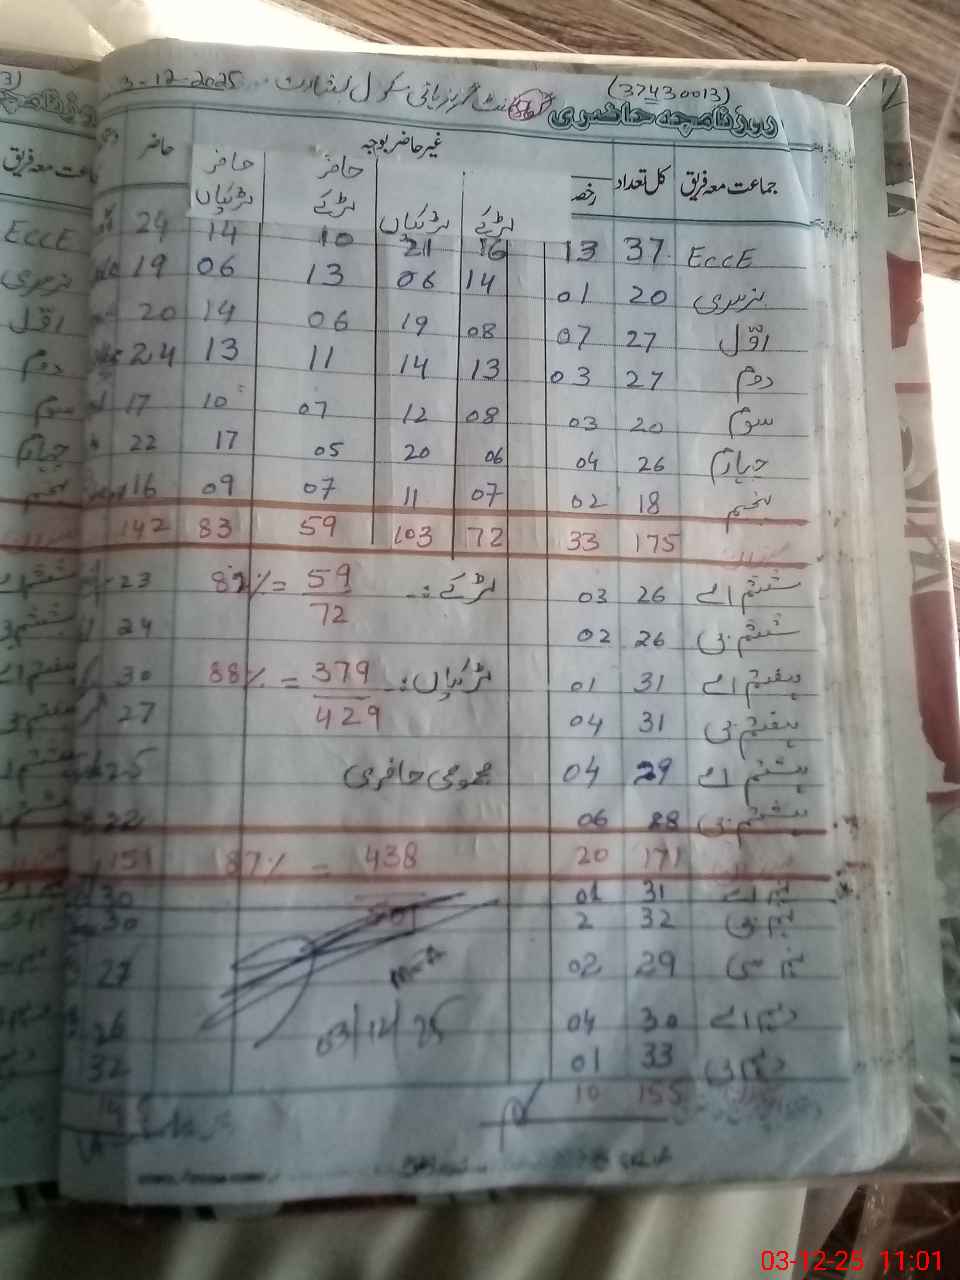 (37430013)
3-12-2025 گورنمنٹ گرلز ہائی سکول بشارت
روزنامچہ حاضری
جماعت معہ فریق کل تعداد رخصت غیر حاضر بوجہ حاضر
لڑکے لڑکیاں حاضر لڑکے حاضر لڑکیاں
EccE 37 13 16 21 10 14 24
نرسری 20 01 14 06 13 06 19
اوّل 27 07 08 19 06 14 20
دوم 27 03 13 14 11 13 24
سوم 20 03 08 12 07 10 17
چہارم 26 04 06 20 05 17 22
پنجم 18 02 07 11 07 09 16
175 33 72 103 59 83 142
ششم اے 26 03 لڑکے :- 59/72 = 82% 23
ششم بی 26 02 24
ہفتم اے 31 01 لڑکیاں :- 379/429 = 88% 30
ہفتم بی 31 04 27
ہشتم اے 29 04 مجموعی حاضری 25
ہشتم بی 28 06 22
171 20 438/501 = 87% 151
نہم اے 31 01 30
نہم بی 32 2 30
نہم سی 29 02 27
دہم اے 30 04 26
03/12/25
دہم بی 33 01 32
155 10
03-12-25 11:01